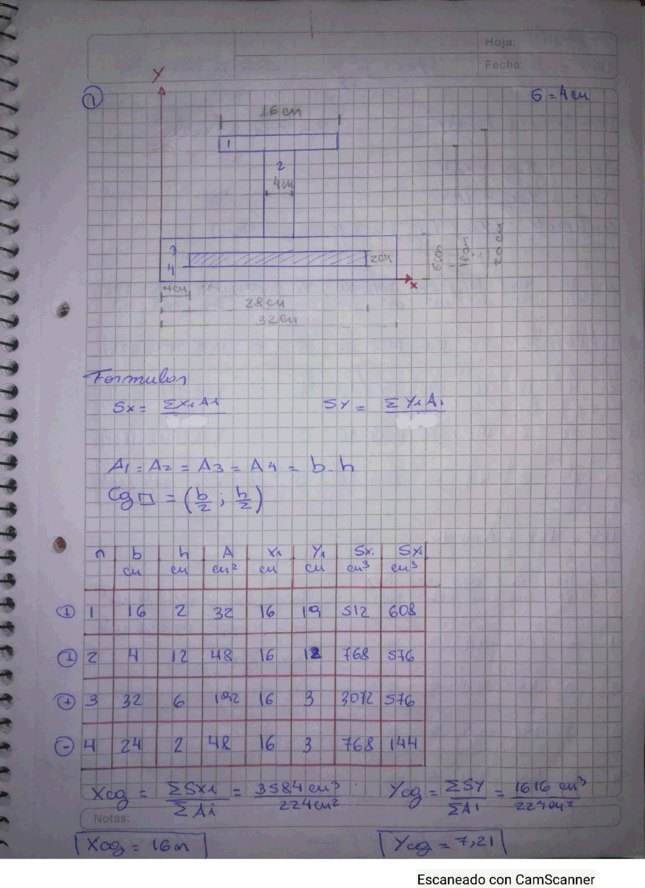 Hoja:
Fecha:
1
6=4cm
Y
16cm
1
2
4cm
3
4
2cm
6cm
18cm
20cm
x
4cm
28cm
32cm
Formulas
Sx = ΣxiAi
SY = ΣYiAi
A1 = A2 = A3 = A4 = b.h
Cg□ = (b/2 ; h/2)
n b cm h cm A cm² Xi cm Yi cm Sxi cm³ Sxi cm³
(+) 1 16 2 32 16 19 512 608
(+) 2 4 12 48 16 12 768 576
(+) 3 32 6 192 16 3 3072 576
(-) 4 24 2 48 16 3 768 144
Xcg = ΣSxi/ΣAi = 3584cm³/224cm²
Ycg = ΣSY/ΣAi = 1616cm³/224cm²
Notas:
Xcg = 16m
Ycg = 7,21
Escaneado con CamScanner